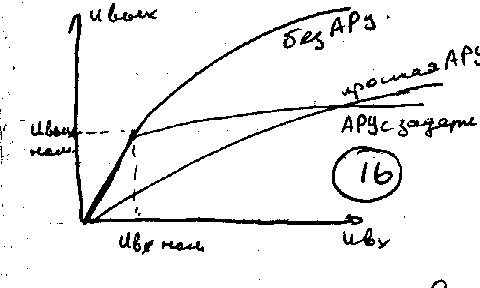 Uвых
без АРУ
простая АРУ
Uвых
ном
АРУ с задерж
16
Uвх ном
Uвх